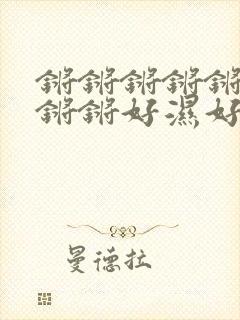 锵锵锵锵锵
锵锵好湿好
曼德拉